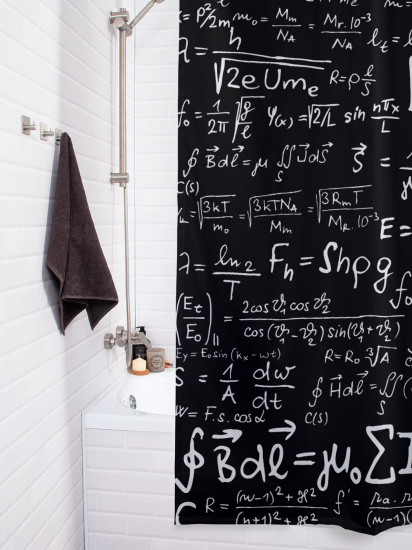 = p²/2m m₀ = Mm/NA = Mr.10⁻³/NA
λ = h/√2eUmₑ R=ρ ℓ/S ℓt =
f₀ = 1/2π √g/ℓ Ψ(x) = √2/L sin nπx/L
∮B⃗dℓ⃗ = μ ∬J⃗dS⃗ S⃗ = 1/
C(S) S
ₖ = √3kT/m₀ = √3kTNA/Mm = √3RmT/Mr.10⁻³
E =
λ = ln2/T Fh = Shρg
f₀
(Et/E₀)|| = 2cosϑ₁cosϑ₂/cos(ϑ₁-ϑ₂)sin(ϑ₁+ϑ₂)
Ey = E₀sin(kx-wt) R=R₀ ³√A
S = 1/A dw/dt ∮H⃗dℓ⃗ = ∬
C(S) S
W = F.s.cosα
∮B⃗dℓ⃗ = μ₀ΣI
R = (n-1)²+æ²/(n+1)²+æ² f' =